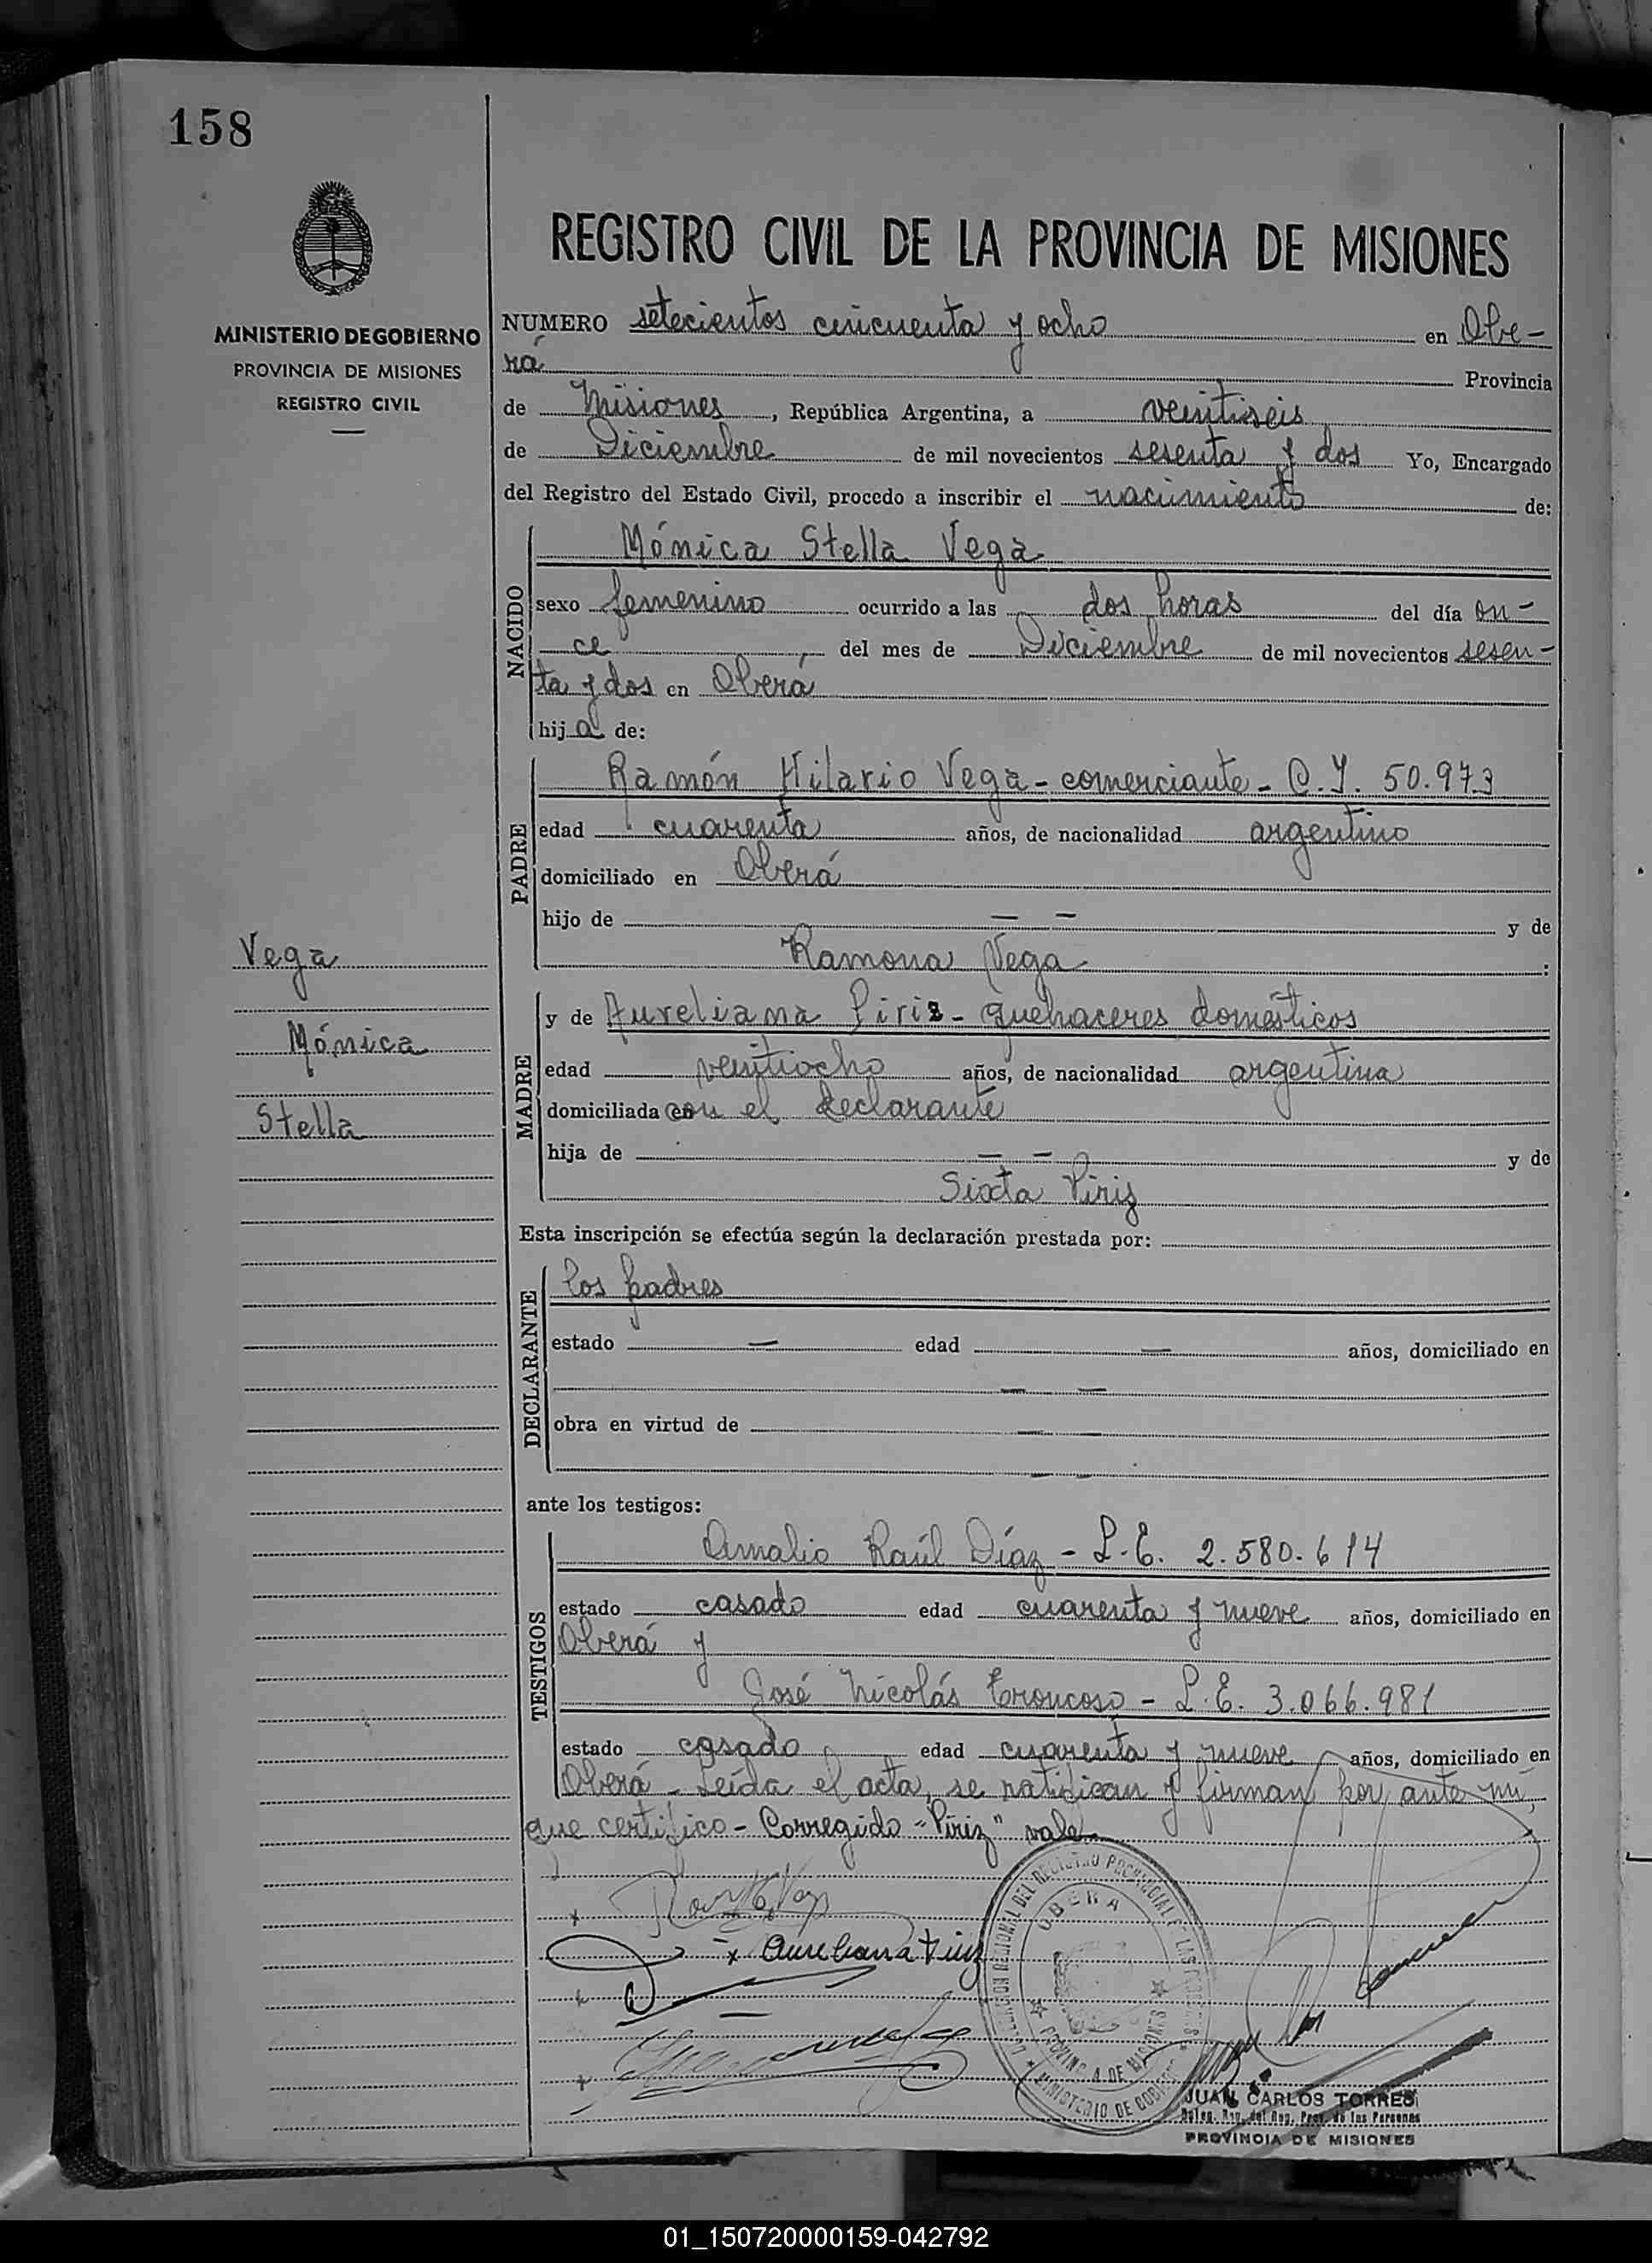 158
REGISTRO CIVIL DE LA PROVINCIA DE MISIONES
MINISTERIO DE GOBIERNO
PROVINCIA DE MISIONES
REGISTRO CIVIL
NUMERO setecientos cincuenta y ocho en Obe-
rá Provincia
de Misiones, República Argentina, a veintiseis
de Diciembre de mil novecientos sesenta y dos Yo, Encargado
del Registro del Estado Civil, procedo a inscribir el nacimiento de:
NACIDO
Mónica Stella Vega
sexo femenino ocurrido a las dos horas del día on-
ce del mes de Diciembre de mil novecientos sesen-
ta y dos en Oberá
hija de:
PADRE
Ramón Hilario Vega - comerciante - C.I. 50.973
edad cuarenta años, de nacionalidad argentino
domiciliado en Oberá
hijo de — — y de
Ramona Vega :
Vega
Mónica
Stella
MADRE
y de Aureliana Piriz - quehaceres domésticos
edad veintiocho años, de nacionalidad argentina
domiciliada con el declarante
hija de — — y de
Sixta Piriz
Esta inscripción se efectúa según la declaración prestada por:
DECLARANTE
los padres
estado — edad — años, domiciliado en
— —
obra en virtud de — —
— —
ante los testigos:
TESTIGOS
Amalio Raúl Díaz - L.E. 2.580.614
estado casado edad cuarenta y nueve años, domiciliado en
Oberá y
José Nicolás Troncoso - L.E. 3.066.981
estado casado edad cuarenta y nueve años, domiciliado en
Oberá - Leída el acta, se ratifican y firman por ante mí,
que certifico - Corregido "Piriz" vale
x Aureliana Piriz
OBERA
PROVINCIA DE MISIONES
MINISTERIO DE GOBIERNO
JUAN CARLOS TORRES
Deleg. Reg. del Reg. Prov. de las Personas
PROVINCIA DE MISIONES
01_150720000159-042792